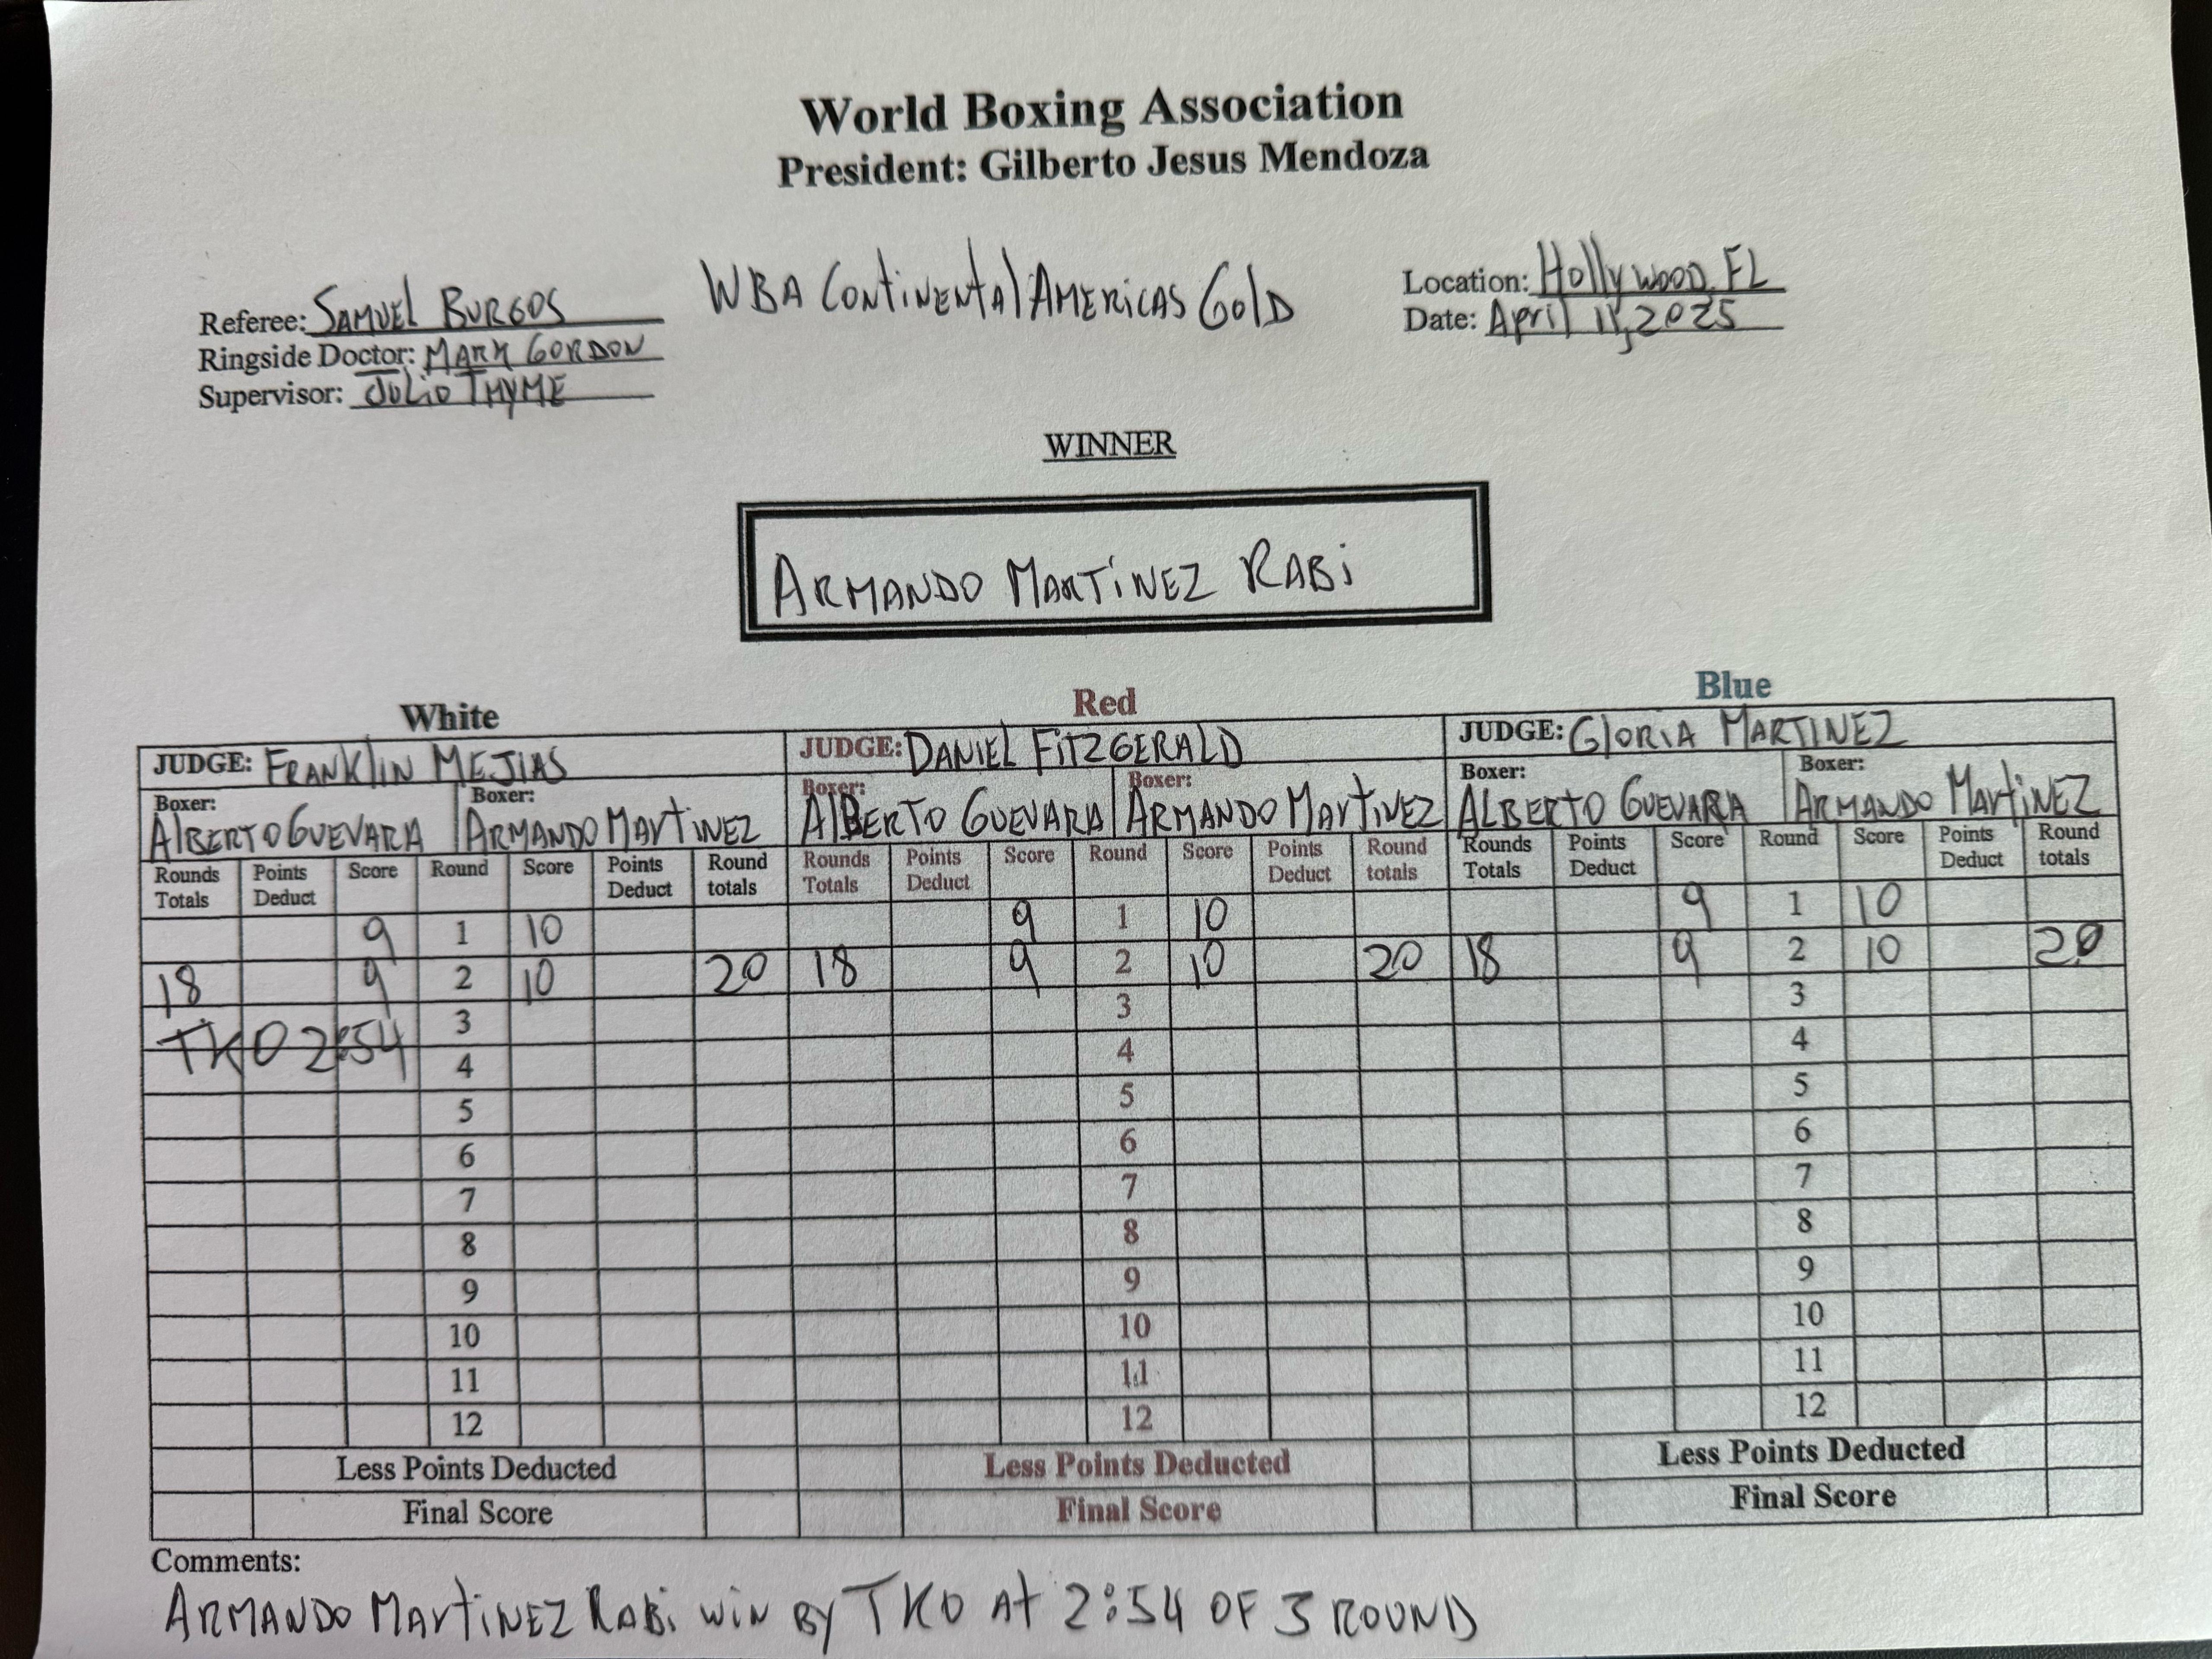 World Boxing Association
President: Gilberto Jesus Mendoza
WBA Continental Americas Gold
Referee: SAMUEL BURGOS
Ringside Doctor: MARK GORDON
Supervisor: Julio THYME
Location: Hollywood, FL
Date: April 11, 2025
WINNER
ARMANDO MARTINEZ RABi
White
Red
Blue
JUDGE: FRANKLIN MEJIAS
JUDGE: DANIEL FITZGERALD
JUDGE: GLORIA MARTINEZ
Boxer: ALBERTO GUEVARA Boxer: ARMANDO MARTINEZ
Boxer: ALBERTO GUEVARA Boxer: ARMANDO MARTINEZ
Boxer: ALBERTO GUEVARA Boxer: ARMANDO MARTINEZ
Rounds Totals Points Deduct Score Round Score Points Deduct Round totals
Rounds Totals Points Deduct Score Round Score Points Deduct Round totals
Rounds Totals Points Deduct Score Round Score Points Deduct Round totals
9 1 10 9 1 10 9 1 10
18 9 2 10 20 18 9 2 10 20 18 9 2 10 20
TKO 2:54
3 3 3
4 4 4
5 5 5
6 6 6
7 7 7
8 8 8
9 9 9
10 10 10
11 11 11
12 12 12
Less Points Deducted Less Points Deducted Less Points Deducted
Final Score Final Score Final Score
Comments:
ARMANDO MARTINEZ RABi WiN BY TKO At 2:54 OF 3 ROUND